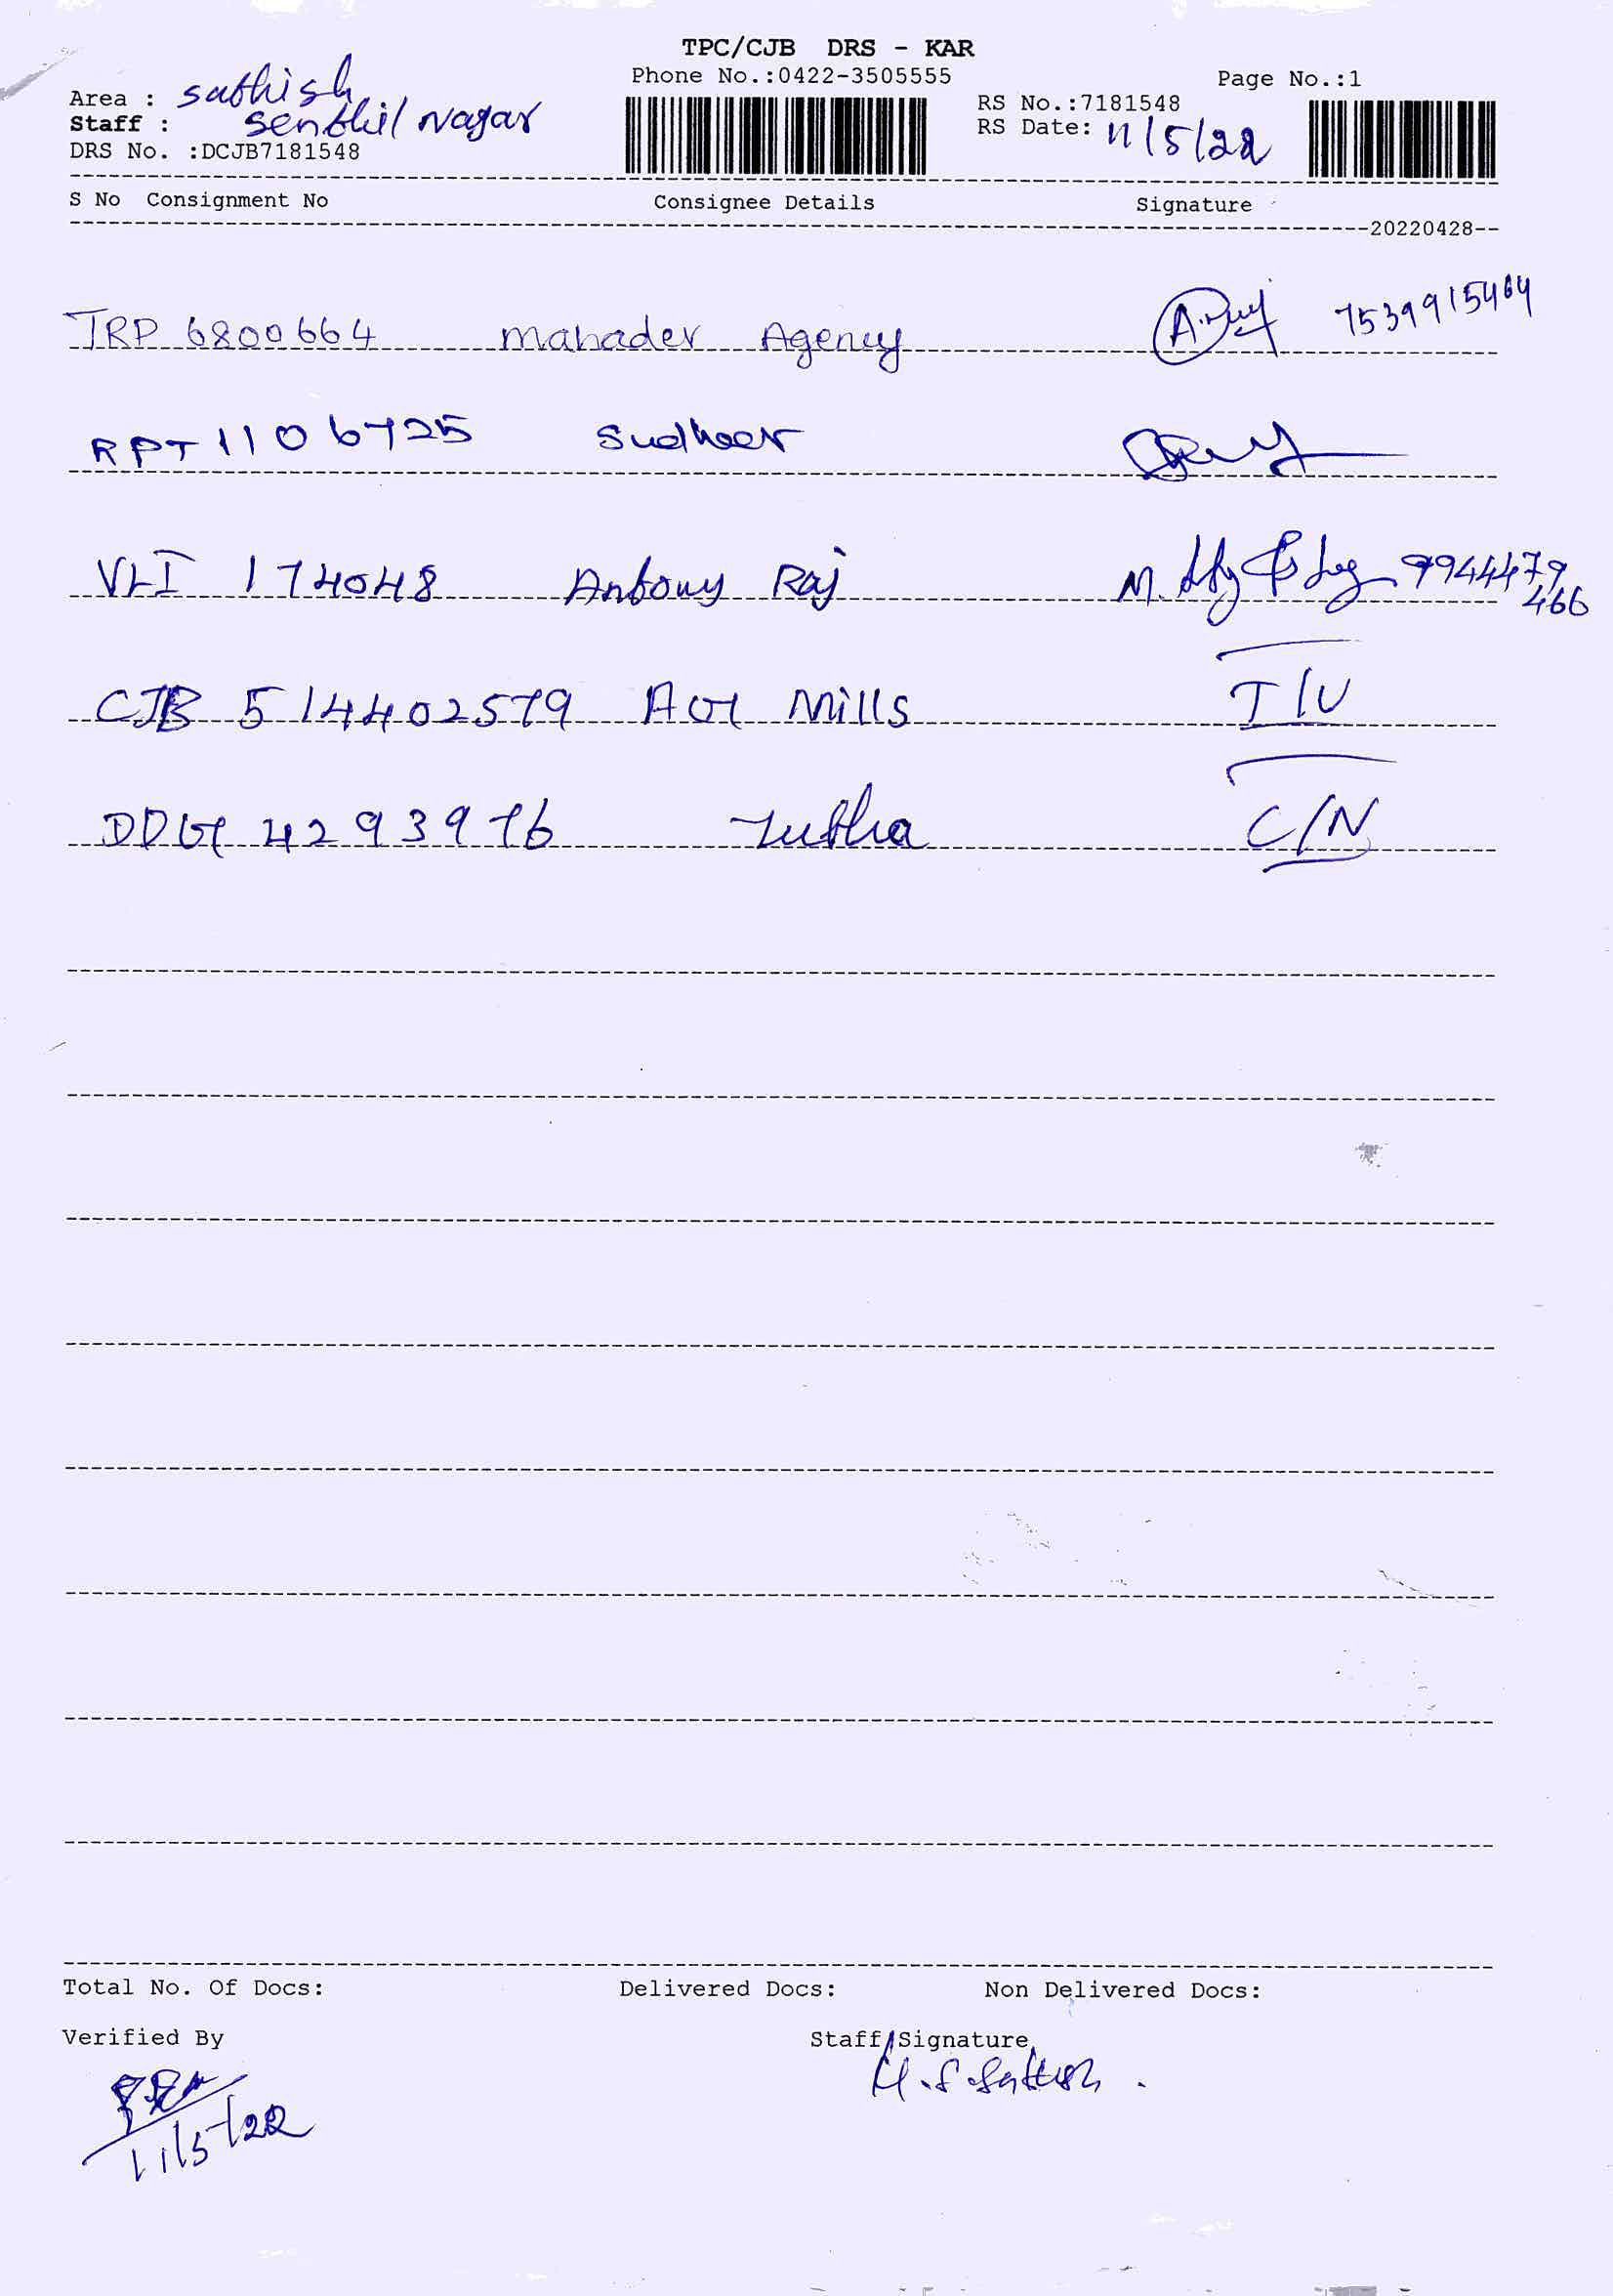 TPC/CJB DRS - KAR
Phone No.:0422-3505555
Page No.:1
Area : sathish
Staff : senthil Nagar
DRS No. :DCJB7181548
RS No.:7181548
RS Date: 11/5/22
S No Consignment No Consignee Details Signature
20220428
TRP 6800664 Mahadev Agency 7539915464
RPT 1106725 Sudheer
VLI 174048 Antony Raj M. 9944479466
CJB 514402579 Mills T/U
DDG 4293976 C/N
Total No. Of Docs: Delivered Docs: Non Delivered Docs:
Verified By Staff Signature
11/5/22